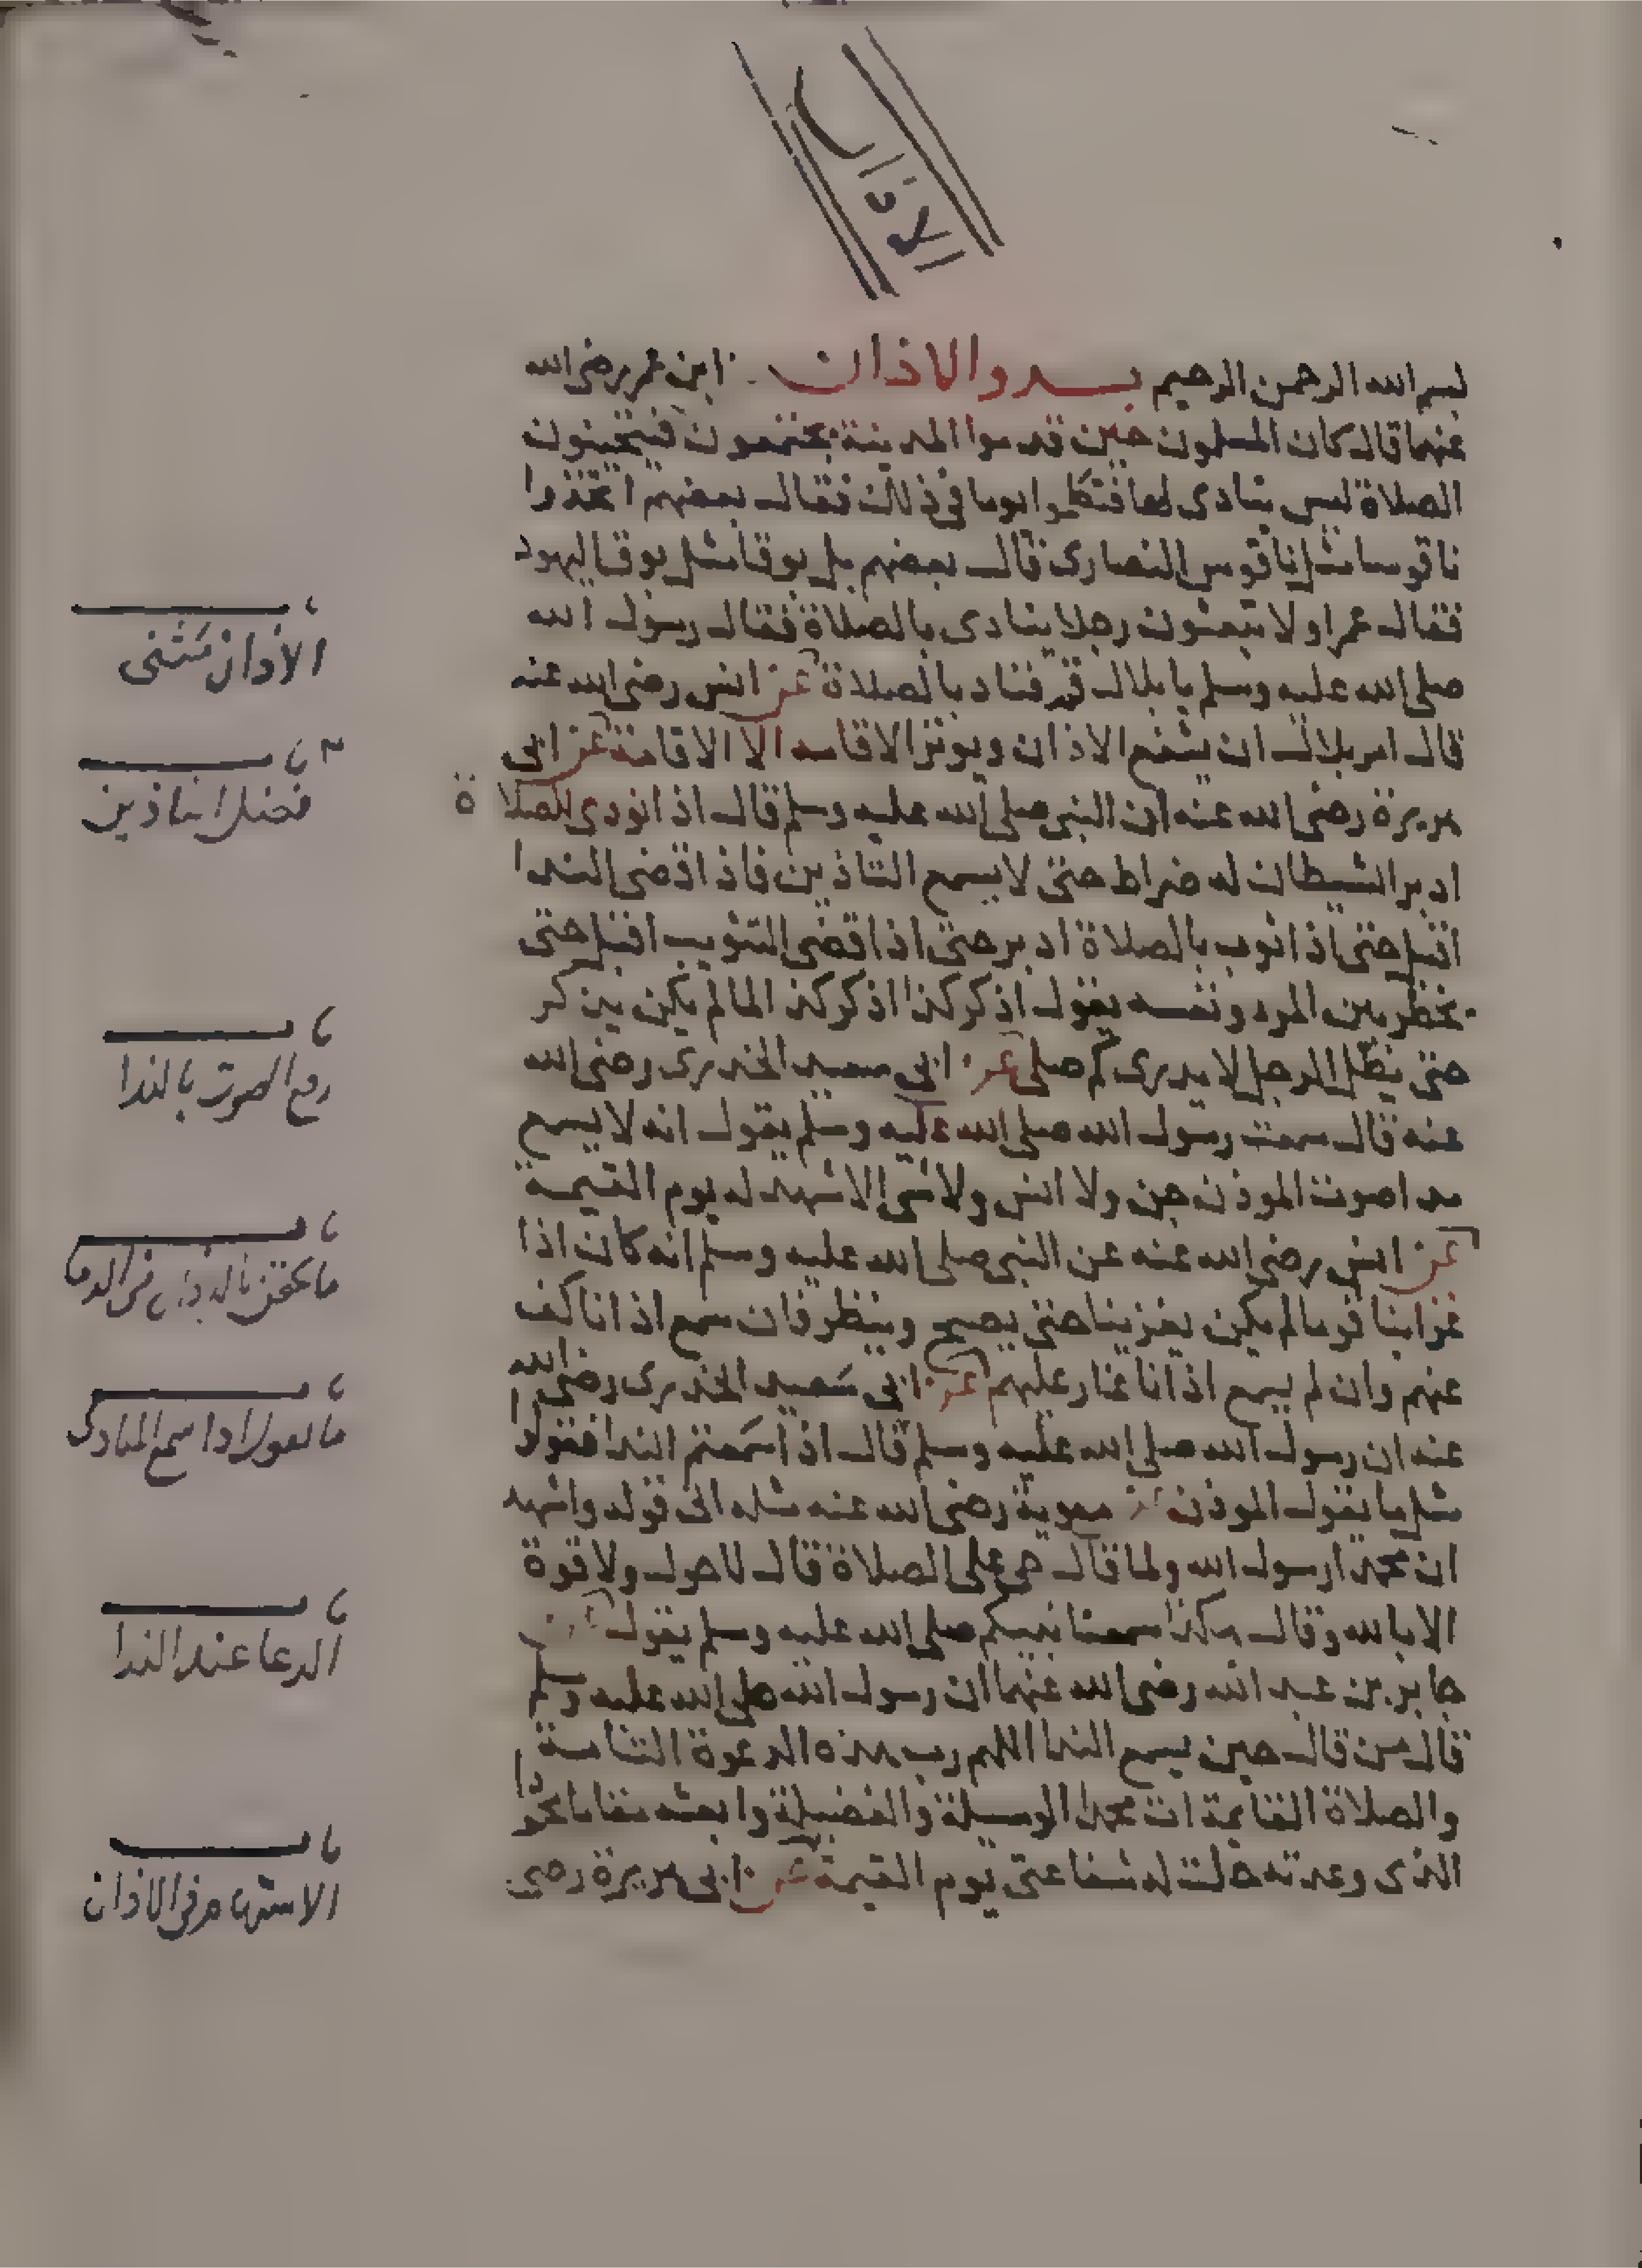 الاذان
بسم الله الرحمن الرحيم بدو الاذان ابن عمر رضى الله
عنهما قال كان المسلمون حين قدموا المدينة يجتمعون فيتحينون
الصلاة ليس ينادى لها فتكلموا يوما فى ذلك فقال بعضهم اتخذوا
ناقوسا مثل ناقوس النصارى قال بعضهم بل بوقا مثل بوق اليهود
فقال عمر اولا تبعثون رجلا ينادى بالصلاة فقال رسول الله
صلى الله عليه وسلم يا بلال قم فناد بالصلاة عن انس رضى الله عنه
قال امر بلال ان يشفع الاذان ويوتر الاقامه الا الاقامة عن ابى
هريرة رضى الله عنه ان النبى صلى الله عليه وسلم قال اذا نودى للصلاة
ادبر الشيطان له ضراط حتى لا يسمع التاذين فاذا قضى الندا
اقبل حتى اذا ثوب بالصلاة ادبر حتى اذا قضى التثويب اقبل حتى
يخطر بين المرء ونفسه يقول اذكر كذا اذكر كذا لما لم يكن يذكر
حتى يظل الرجل لا يدرى كم صلى عن ابى سعيد الخدرى رضى الله
عنه قال سمعت رسول الله صلى الله عليه وسلم يقول انه لا يسمع
مدا صوت الموذن جن ولا انس ولا شى الا شهد له يوم القيمة
عن انس رضى الله عنه عن النبى صلى الله عليه وسلم انه كان اذا
غزا بنا قوما لم يكن يغزينا حتى يصبح وينظر فان سمع اذانا كف
عنهم وان لم يسمع اذانا غار عليهم عن ابى سعيد الخدرى رضى الله
عنه ان رسول الله صلى الله عليه وسلم قال اذا سمعتم الندا فقولوا
مثل ما يقول الموذن عن معوية رضى الله عنه مثله الى قوله واشهد
ان محمدا رسول الله ولما قال حى على الصلاة قال لا حول ولا قوة
الا بالله وقال هكذا سمعنا نبيكم صلى الله عليه وسلم يقول عن
جابر بن عبد الله رضى الله عنهما ان رسول الله صلى الله عليه وسلم
قال من قال حين يسمع الندا اللهم رب هذه الدعوة التامة
والصلاة القايمة ات محمدا الوسيلة والفضيلة وابعثه مقاما محمودا
الذى وعدته حلت له شفاعتى يوم القيمة عن ابى هريرة رضى
الاذان مثنى
فضل التاذين
رفع الصوت بالندا
ما يحقن بالاذان من الدما
ما يقول اذا سمع المنادى
الدعا عند الندا
الاستهام فى الاذان